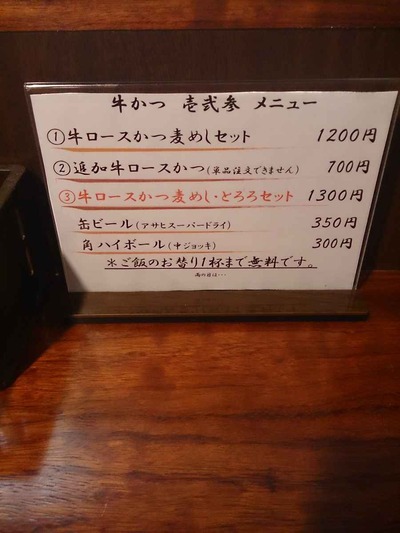 牛かつ 壱弐参 メニュー
①牛ロースかつ麦めしセット 1200円
②追加牛ロースかつ(単品注文できません) 700円
③牛ロースかつ麦めし・とろろセット 1300円
缶ビール(アサヒスーパードライ) 350円
角ハイボール(中ジョッキ) 300円
*ご飯のお替り1杯まで無料です。